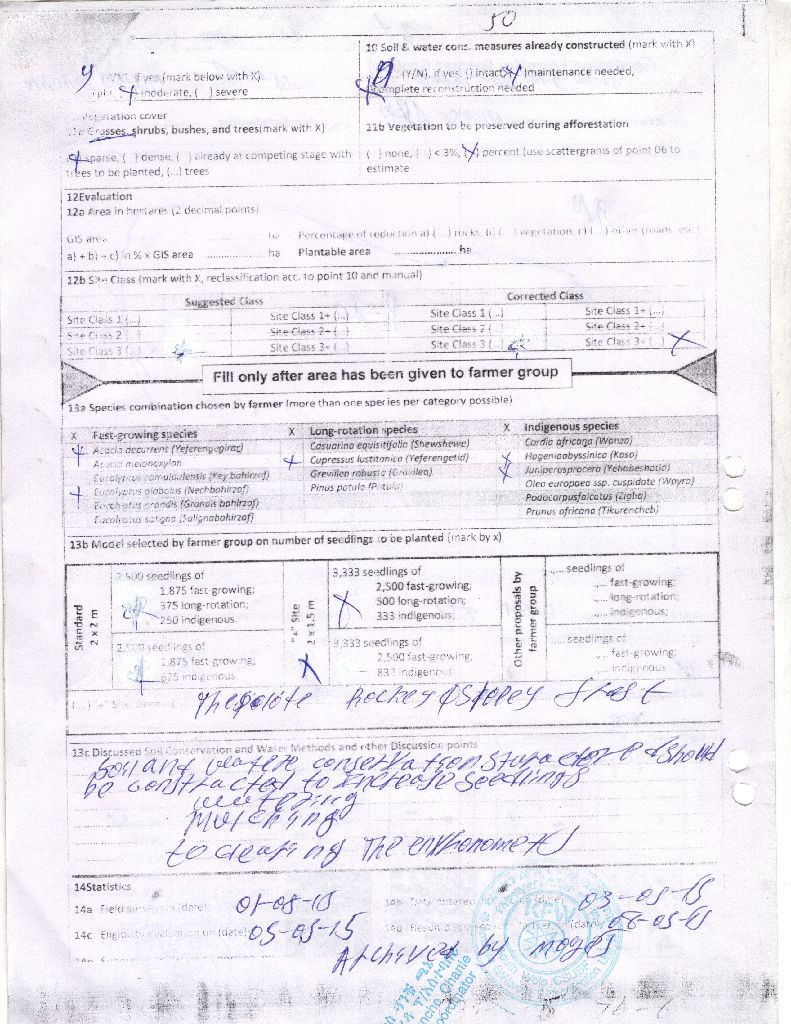 50
10 Soil & water cons. measures already constructed (mark with X)
y ... if yes (mark below with X)
(Y/N), if yes, () intact, X) maintenance needed,
X moderate, ( ) severe
complete reconstruction needed
vegetation cover
Grasses, shrubs, bushes, and trees(mark with X)
11b Vegetation to be preserved during afforestation
sparse, ( ) dense, ( ) already at competing stage with
trees to be planted, (...) trees
( ) none, ( ) < 3%, (X) percent (use scattergrams of point 06 to
estimate
12Evaluation
12a Area in hectares (2 decimal points)
GIS area .................... ha Percentage of reduction a) (...) rocks, b) (...) vegetation, c) (...) other (roads, etc.)
a) + b) + c) in % x GIS area .................... ha Plantable area .................... ha
12b Site Class (mark with X, reclassification acc. to point 10 and manual)
Suggested Class Corrected Class
Site Class 1 (...) Site Class 1+ (...) Site Class 1 (...) Site Class 1+ (...)
Site Class 2 (...) Site Class 2+ (...) Site Class 2 (...) Site Class 2+ (...)
Site Class 3 (...) Site Class 3+ (...) Site Class 3 (...) Site Class 3+ (...) X
Fill only after area has been given to farmer group
13a Species combination chosen by farmer (more than one species per category possible)
X Fast-growing species X Long-rotation species X Indigenous species
X Acacia decurrens (Yeferenjgirar) Casuarina equisitifolia (Shewshewe) Cordia africana (Wanza)
Acacia melanoxylon X Cupressus lustitanica (Yeferengetid) X Hageniaabyssinica (Koso)
Eucalyptus camaldulensis (Key bahirzaf) Grevillea robusta (Gravilea) X Juniperusprocera (Yehabeshatid)
X Eucalyptus globolus (Nechbahirzaf) Pinus patula (Patula) Olea europaea ssp. cuspidate (Wayra)
Eucalyptus grandis (Grandis bahirzaf) Podocarpusfalcatus (Zigba)
Eucalyptus saligna (Salignabahirzaf) Prunus africana (Tikurencheb)
13b Model selected by farmer group on number of seedlings to be planted (mark by x)
Standard
2 x 2 m
2,500 seedlings of
1,875 fast-growing;
375 long-rotation;
250 indigenous.
2,500 seedlings of
1,875 fast-growing;
625 indigenous
"+" Site
2 x 1,5 m
X
3,333 seedlings of
2,500 fast-growing;
X 500 long-rotation;
333 indigenous;
3,333 seedlings of
2,500 fast-growing;
833 indigenous
Other proposals by
farmer group
..... seedlings of
..... fast-growing;
..... long-rotation;
..... indigenous;
..... seedlings of
.... fast-growing;
.... indigenous
(...) "+" Site, because
13c Discussed Soil Conservation and Water Methods and other Discussion points
Soil and watere conservation should
be constracted to Increase seedlings
watering
mulching
to cleaning The
14Statistics
14a Field survey on (date) 01-05-15 14b Data entered (date) 03-05-15
14c Eligibility evaluation on (date) 05-05-15 (date) 06-05-15
Archived by moges
KFW